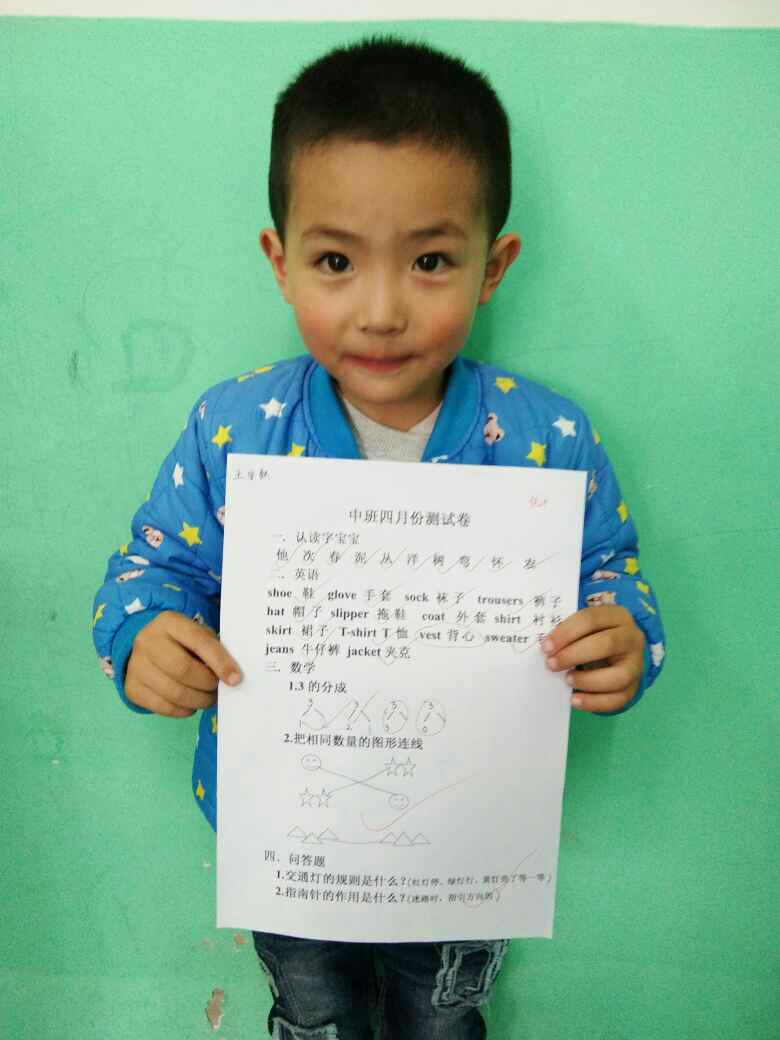 中班四月份测试卷
一．认读字宝宝
他 次 春 泥 丛 洋 树 弯 怀 农
二．英语
shoe 鞋 glove 手套 sock 袜子 trousers 裤子
hat 帽子 slipper 拖鞋 coat 外套 shirt 衬衫
skirt 裙子 T-shirt T 恤 vest 背心 sweater
jeans 牛仔裤 jacket 夹克
三．数学
1.3 的分成
3 3 3 3
2 3 0
2.把相同数量的图形连线
四．问答题
1.交通灯的规则是什么？(红灯停、绿灯行、黄灯亮了等一等)
2.指南针的作用是什么？(迷路时，指引方向的)